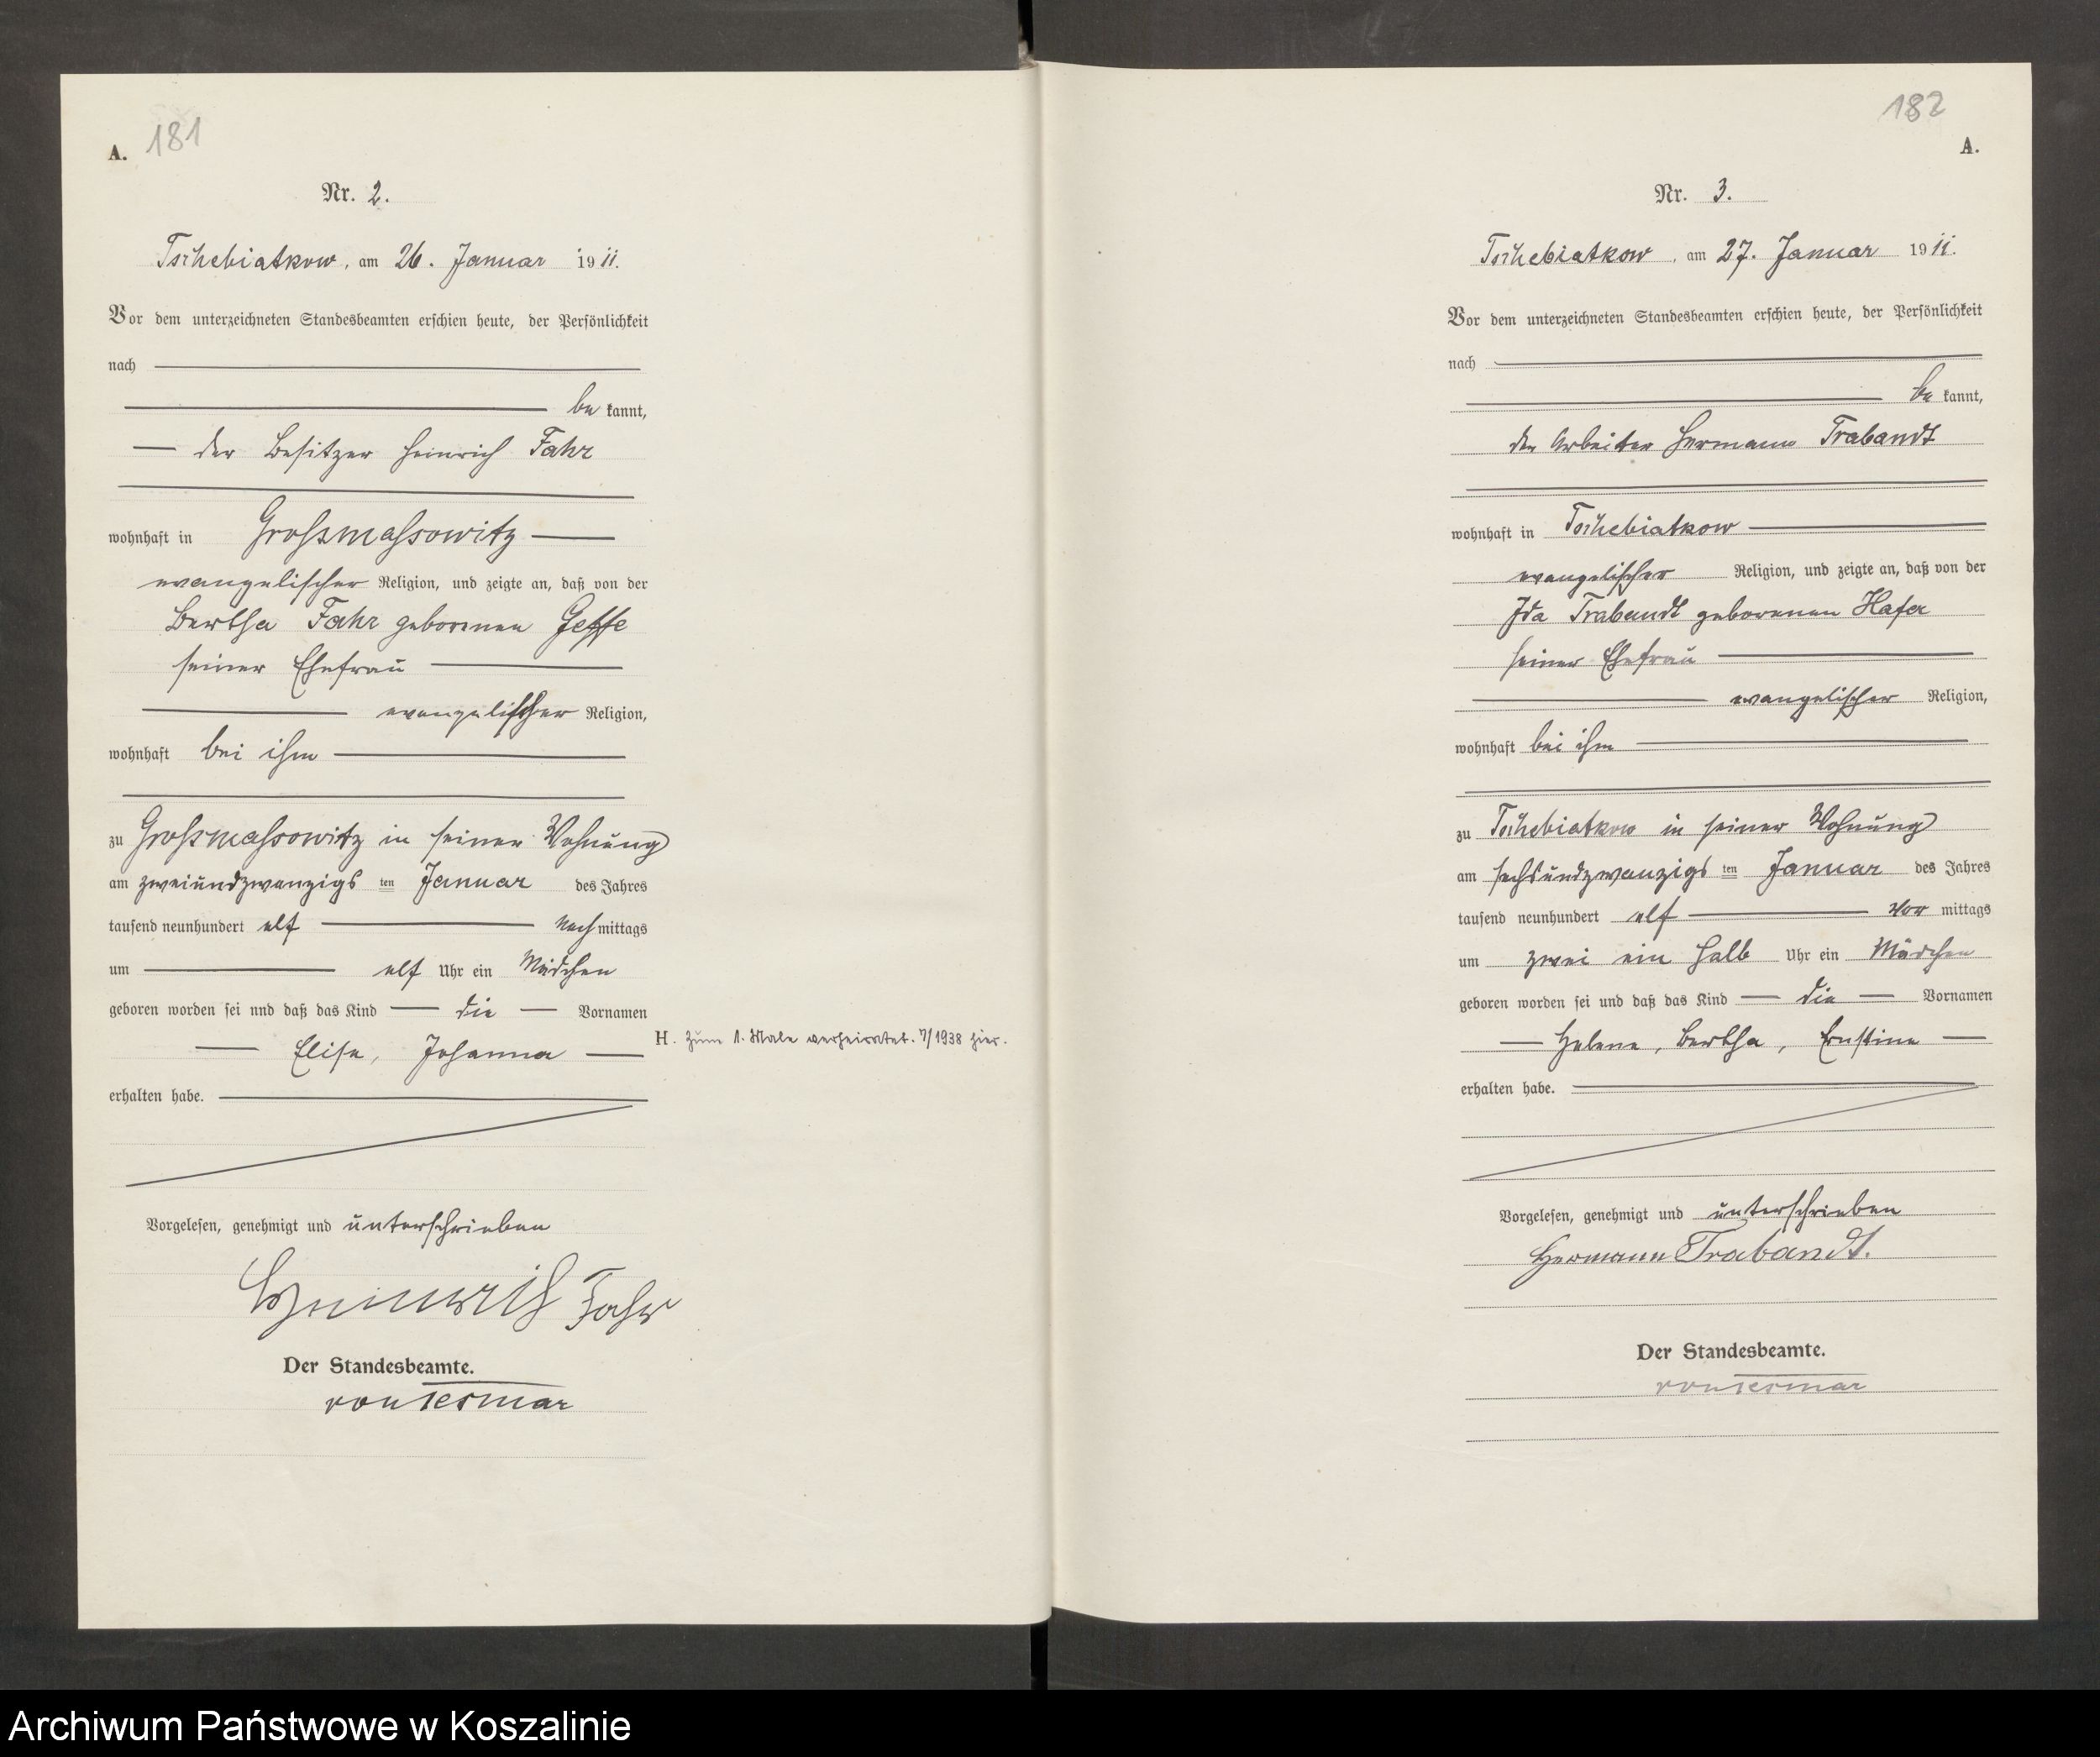 A. 181
Nr. 2.
Tschebiatkow, am 26. Januar 1911.
Vor dem unterzeichneten Standesbeamten erschien heute, der Persönlichkeit
nach
be kannt,
der Besitzer Heinrich Fahr
wohnhaft in Grossmassowitz
evangelischer Religion, und zeigte an, daß von der
Bertha Fahr geborenen
seiner Ehefrau
evangelischer Religion,
wohnhaft bei ihm
zu Grossmassowitz in seiner Wohnung
am zweiundzwanzigs ten Januar des Jahres
tausend neunhundert elf Nach mittags
um elf Uhr ein Mädchen
geboren worden sei nnd daß das Kind die Vornamen
Elise, Johanna
H. Zum 1. Male verheiratet. 7/1938 hier.
erhalten habe.
Vorgelesen, genehmigt und unterschrieben
Heinrich Fahr
Der Standesbeamte.
von Tesmar
182
A.
Nr. 3.
Tschebiatkow, am 27. Januar 1911.
Vor dem unterzeichneten Standesbeamten erschien heute, der Persönlichkeit
nach
be kannt,
der Arbeiter Hermann Trabandt
wohnhaft in Tschebiatkow
evangelischer Religion, und zeigte an, daß von der
Ida Trabandt geborenen
seiner Ehefrau
evangelischer Religion,
wohnhaft bei ihm
zu Tschebiatkow in seiner Wohnung
am sechsundzwanzigs ten Januar des Jahres
tausend neunhundert elf Vor mittags
um zwei ein halb Uhr ein Mädchen
geboren worden sei und daß das Kind die Vornamen
Helene, Bertha, Ernstine
erhalten habe.
Vorgelesen, genehmigt und unterschrieben
Hermann Trabandt.
Der Standesbeamte.
von Tesmar
Archiwum Państwowe w Koszalinie